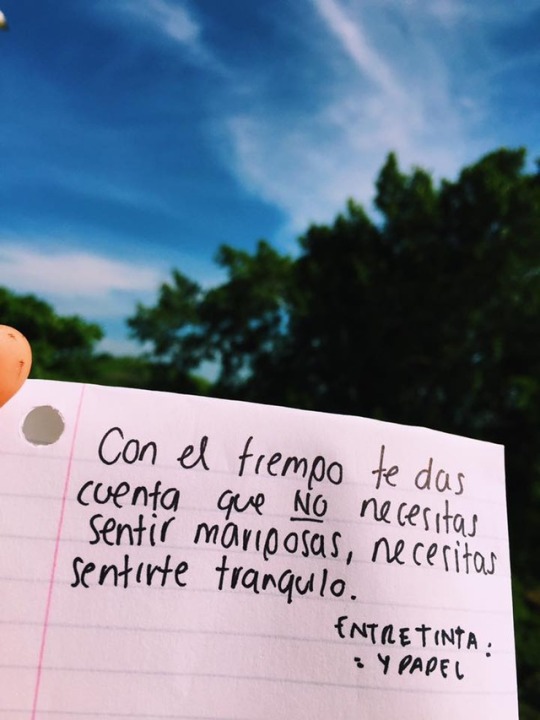 Con el tiempo te das
cuenta que NO necesitas
sentir mariposas, necesitas
sentirte tranquilo.
ENTRETINTA :
: Y PAPEL